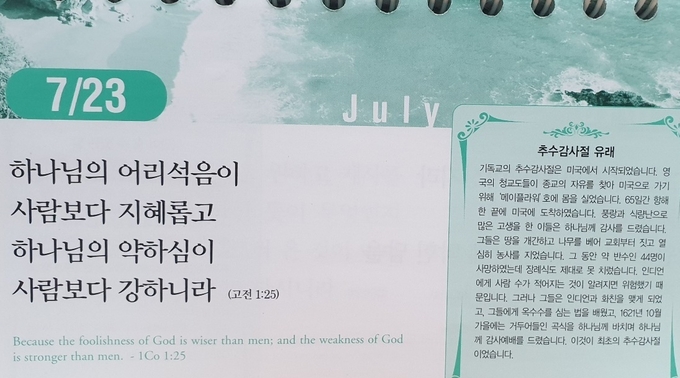 7/23
July
하나님의 어리석음이
사람보다 지혜롭고
하나님의 약하심이
사람보다 강하니라 (고전 1:25)
Because the foolishness of God is wiser than men; and the weakness of God
is stronger than men. - 1Co 1:25
추수감사절 유래
기독교의 추수감사절은 미국에서 시작되었습니다. 영
국의 청교도들이 종교의 자유를 찾아 미국으로 가기
위해 '메이플라워' 호에 몸을 실었습니다. 65일간 항해
한 끝에 미국에 도착하였습니다. 풍랑과 식량난으로
많은 고생을 한 이들은 하나님께 감사를 드렸습니다.
그들은 땅을 개간하고 나무를 베어 교회부터 짓고 열
심히 농사를 지었습니다. 그 동안 약 반수인 44명이
사망하였는데 장례식도 제대로 못 치렀습니다. 인디언
에게 사람 수가 적어지는 것이 알려지면 위험했기 때
문입니다. 그러나 그들은 인디언과 화친을 맺게 되었
고, 그들에게 옥수수를 심는 법을 배웠고, 1621년 10월
가을에는 거두어들인 곡식을 하나님께 바치며 하나님
께 감사예배를 드렸습니다. 이것이 최초의 추수감사절
이었습니다.